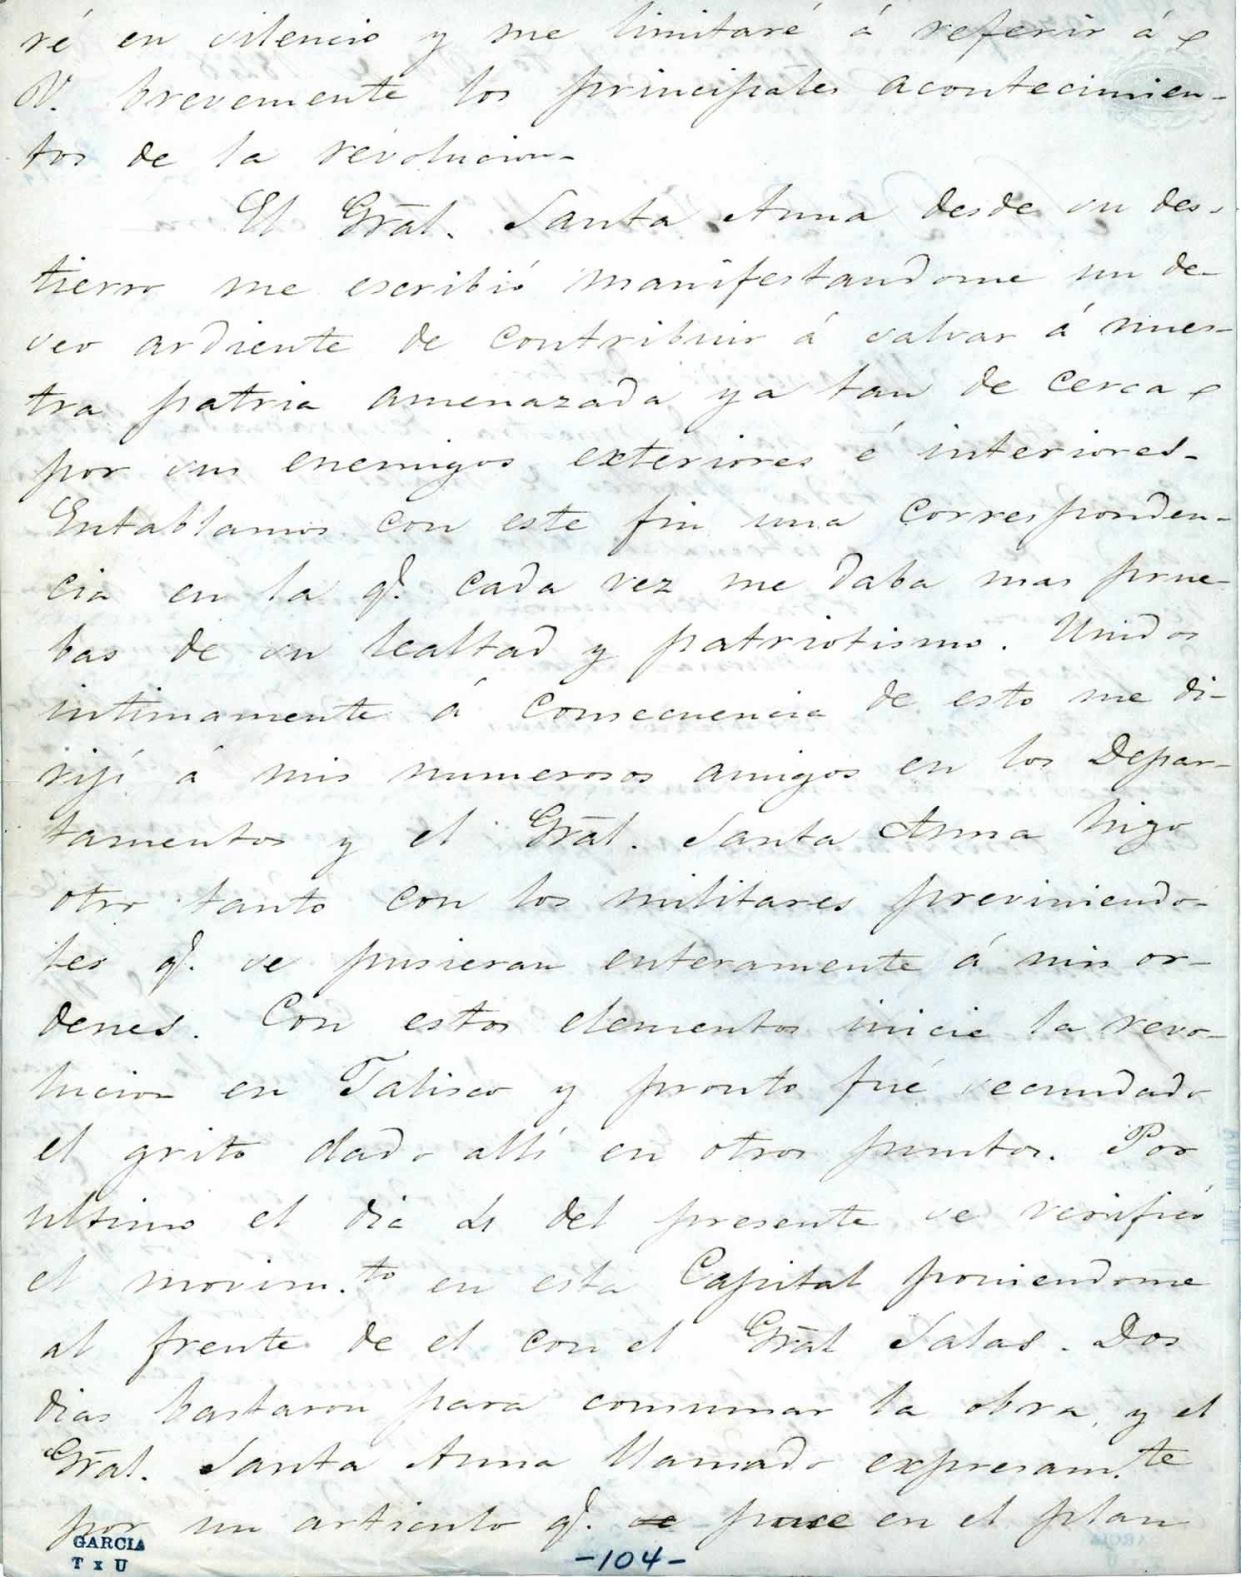 ré en silencio y me limitaré á referir á
V. brevemente los principales acontecimien-
tos de la revolucion-
El Grāl. Santa Anna desde su des-
tierro me escribió manifestandome un de-
seo ardiente de contribuir á salvar á nues-
tra patria amenazada ya tan de cerca
por sus enemigos exteriores é interiores-
Entablamos con este fin una corresponden-
cia en la q̃. cada vez me daba mas prue-
bas de su lealtad y patriotismo. Unidos
intimamente á consecuencia de esto me di-
rijí á mis numerosos amigos en los Depar-
tamentos y el Grāl. Santa Anna hizo
otro tanto con los militares previniendo-
les q̃. se pusieran enteramente á mis or-
denes. Con estos elementos inicie la revo-
lucion en Jalisco y pronto fué secundado
el grito dado allí en otros puntos. Por
ultimo el dia 4 del presente se verificó
el movim.to en esta Capital poniendome
al frente de el con el Grāl Salas. Dos
dias bastaron para consumar la obra, y el
Grāl. Santa Anna llamado expresam.te
por un articulo q̃. se puse en el plan
GARCIA
T x U
-104-